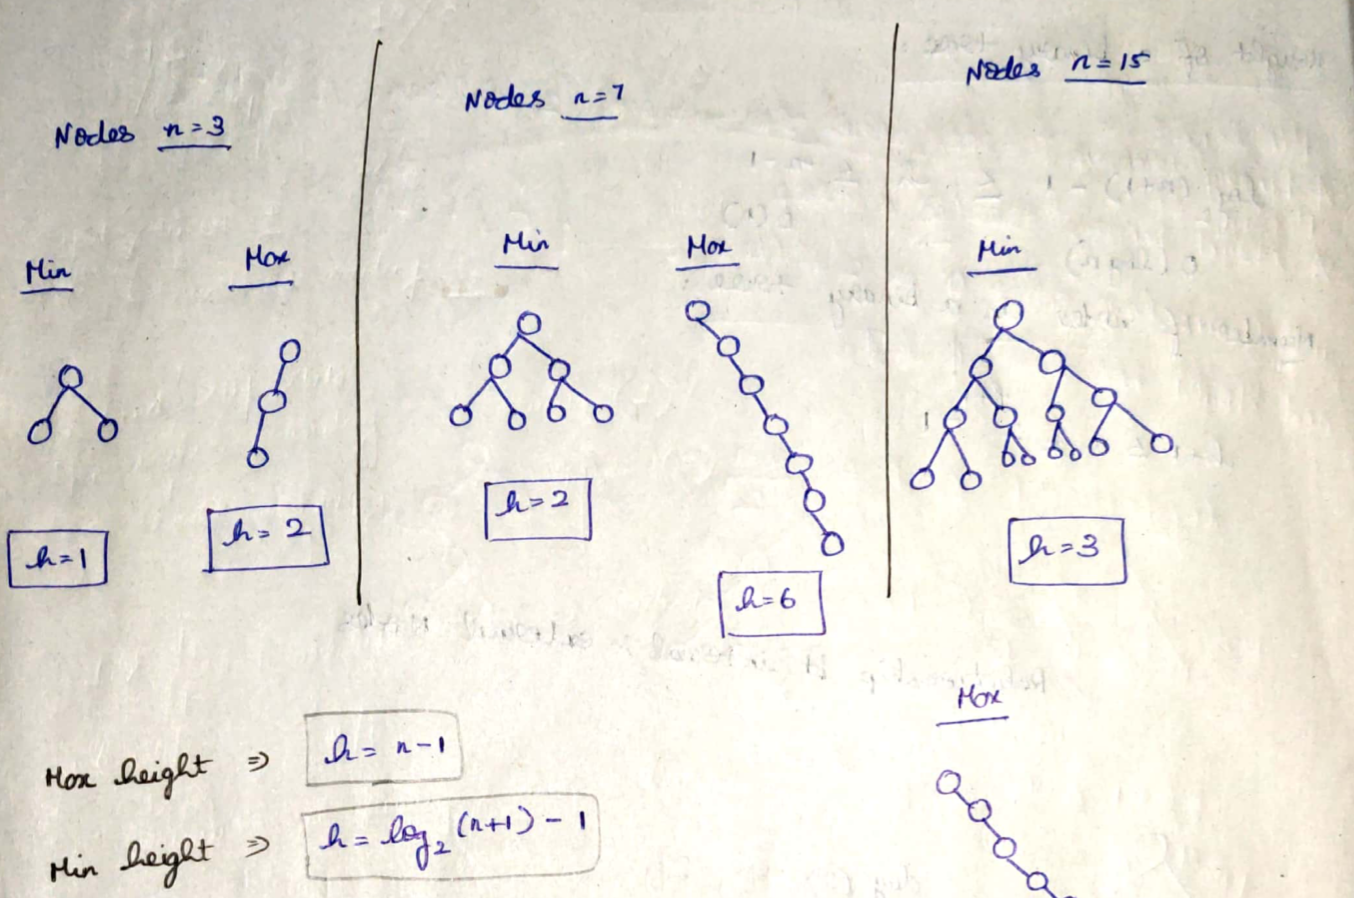 Nodes n=3
Min
Max
h=1
h=2
Nodes n=7
Min
Max
h=2
h=6
Nodes n=15
Min
h=3
Max
Max height ⇒ h= n-1
Min height ⇒ h= log₂(n+1) - 1